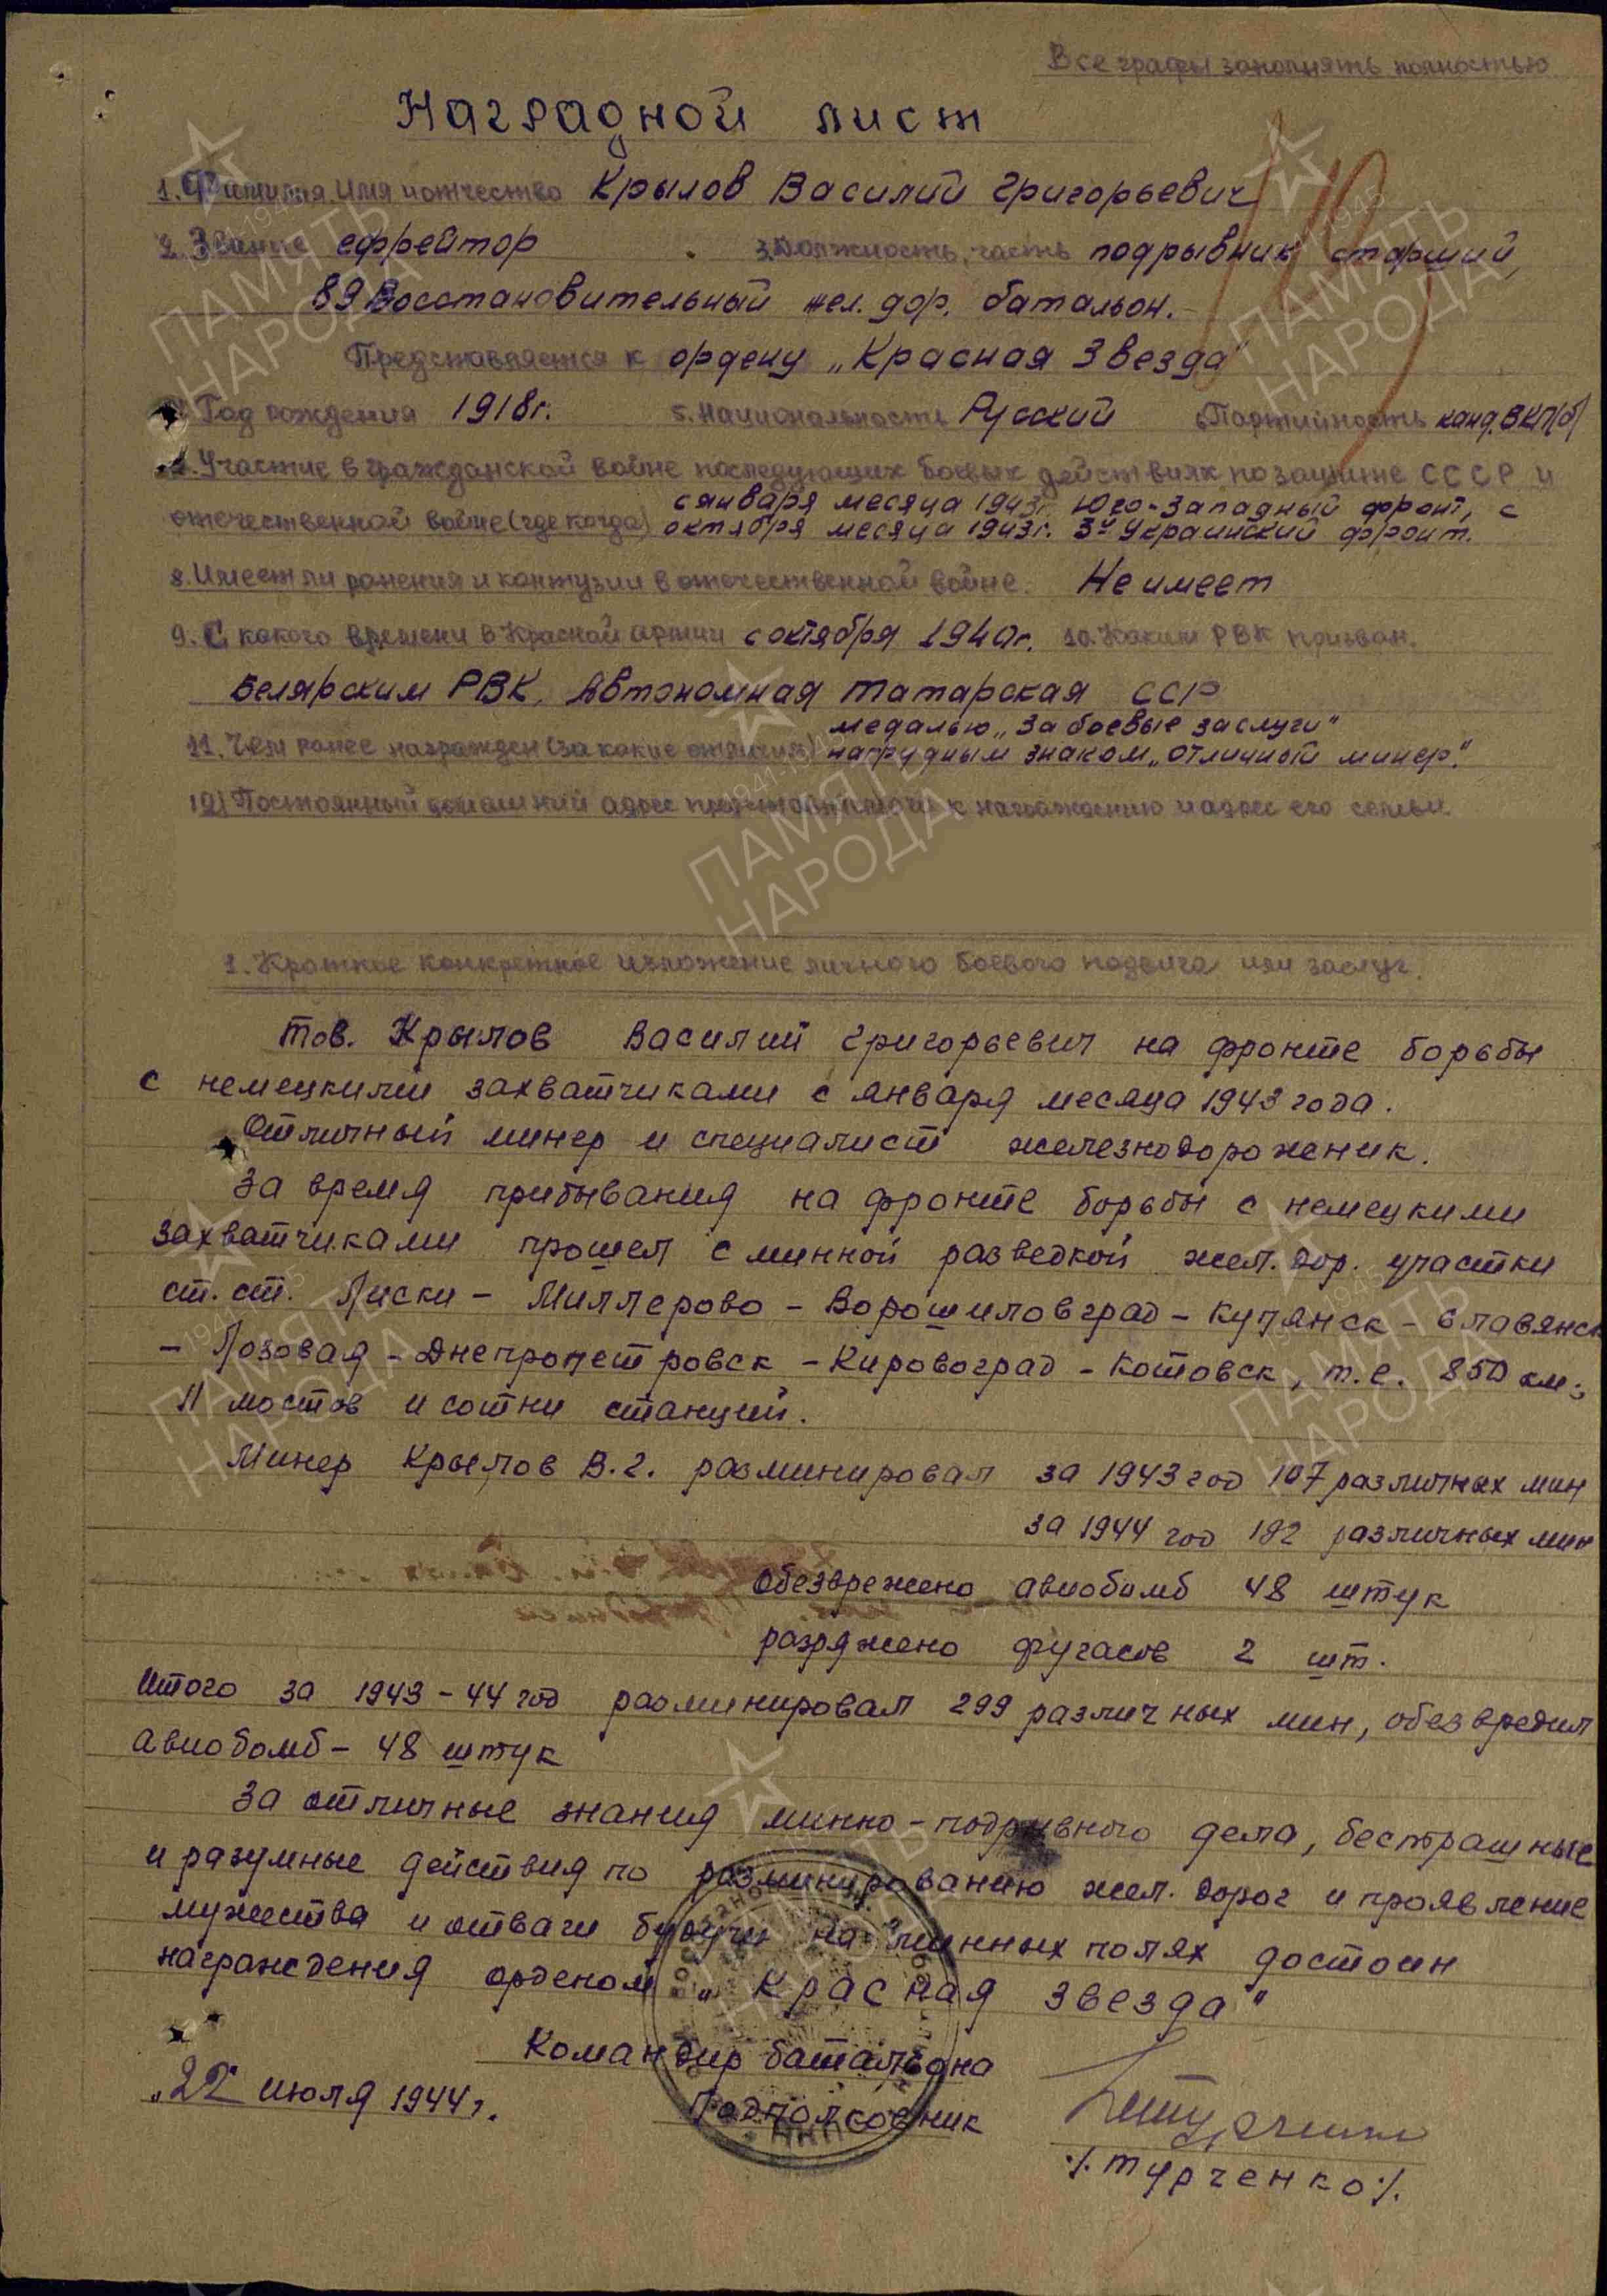 Все графы заполнять полностью
Наградной лист
1. Фамилия, Имя и отчество Крылов Василий Григорьевич
2. Звание ефрейтор 3. Должность, часть подрывник старший,
89 Восстановительный жел. дор. батальон.
Представляется к ордену „Красная Звезда"
Год рождения 1918г. 5. Национальность Русский 6. Партийность канд. ВКП(б)
Участие в гражданской войне последующих боевых действиях по защите СССР и
с января месяца 1943г. Юго-Западный фронт, с
отечественной войне (где когда) октября месяца 1943г. 3й Украинский фронт.
8. Имеет ли ранения и контузии в отечественной войне. Не имеет
9. С какого времени в Красной армии с октября 1940г. 10. Каким РВК призван.
Белярским РВК, Автономная Татарская ССР
медалью „За боевые заслуги"
11. Чем ранее награжден (за какие отличия) нагрудным знаком „Отличный минер".
12) Постоянный домашний адрес представляемого к награждению и адрес его семьи
1. Краткое конкретное изложение личного боевого подвига или заслуг.
Тов. Крылов Василий Григорьевич на фронте борьбы
с немецкими захватчиками с января месяца 1943 года.
Отличный минер и специалист железнодороженик.
За время прибывания на фронте борьбы с немецкими
захватчиками прошел с минной разведкой жел. дор. участки
ст. ст. Лиски – Миллерово – Ворошиловград – Купянск – Славянск
– Лозовая – Днепропетровск – Кировоград – Котовск, т.е. 850 км;
11 мостов и сотни станций.
Минер Крылов В.Г. разминировал за 1943 год 107 различных мин
за 1944 год 192 различных мин
обезврежено авиобомб 48 штук
разряжено фугасов 2 шт.
Итого за 1943-44 год разминировал 299 различных мин, обезвредил
авиобомб – 48 штук
За отличные знания минно-подрывного дела, бестрашные
и разумные действия по разминированию жел. дорог и проявление
мужества и отваги будучи на минных полях достоин
награждения орденом „Красная звезда"
Командир батальона
„22" июля 1944 г.
Подполковник
/. Турченко /.
ПАМЯТЬ
НАРОДА
1941-1945